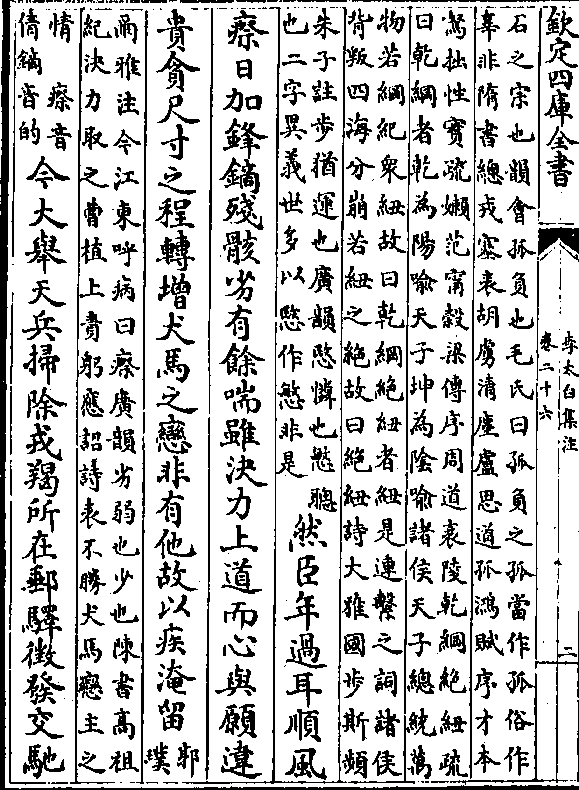 欽定四庫全書
李太白集注
卷二十六
二
石之宗也韻會孤負也毛氏曰孤負之孤當作孤俗作
辜非隋書總戎塞表胡虜清塵盧思道孤鴻賦序才本
駑拙性實疏嬾范甯穀梁傳序周道衰陵乾綱絕紐疏
曰乾綱者乾為陽喻天子坤為陰喻諸侯天子總統萬
物若綱紀衆紐故曰乾綱絕紐者紐是連繫之詞諸侯
背叛四海分崩若紐之絶故曰絕紐詩大雅國步斯頻
朱子註步猶運也廣韻愍憐也慜聰
也二字異義世多以愍作慜非是
然臣年過耳順風
瘵日加鋒鏑殘骸劣有餘喘雖決力上道而心與願違
貴貪尺寸之程轉增犬馬之戀非有他故以疾淹留
郭璞
爾雅注今江東呼病曰瘵廣韻劣弱也少也陳書高祖
紀決力取之曹植上責躬應詔詩表不勝犬馬戀主之
情 瘵音
倩鏑音的
今大舉天兵掃除戎羯所在郵驛徵發交馳